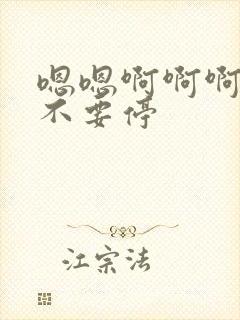 嗯嗯啊啊啊
不要停
江宗法